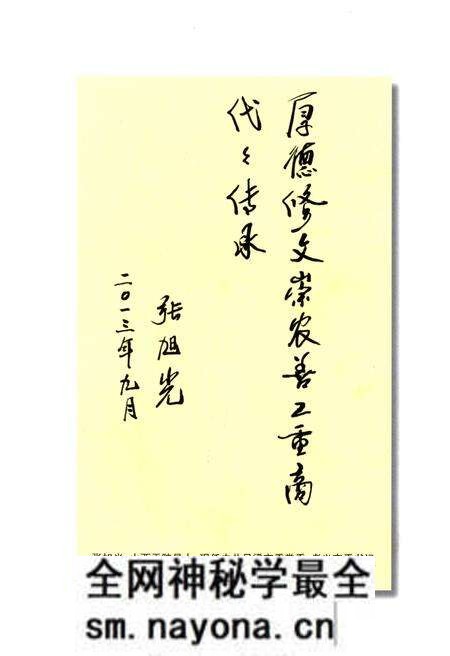 厚德修文崇农善工重商
代々传承
张旭光
二〇一三年九月
全网神秘学最全
sm.nayona.cn